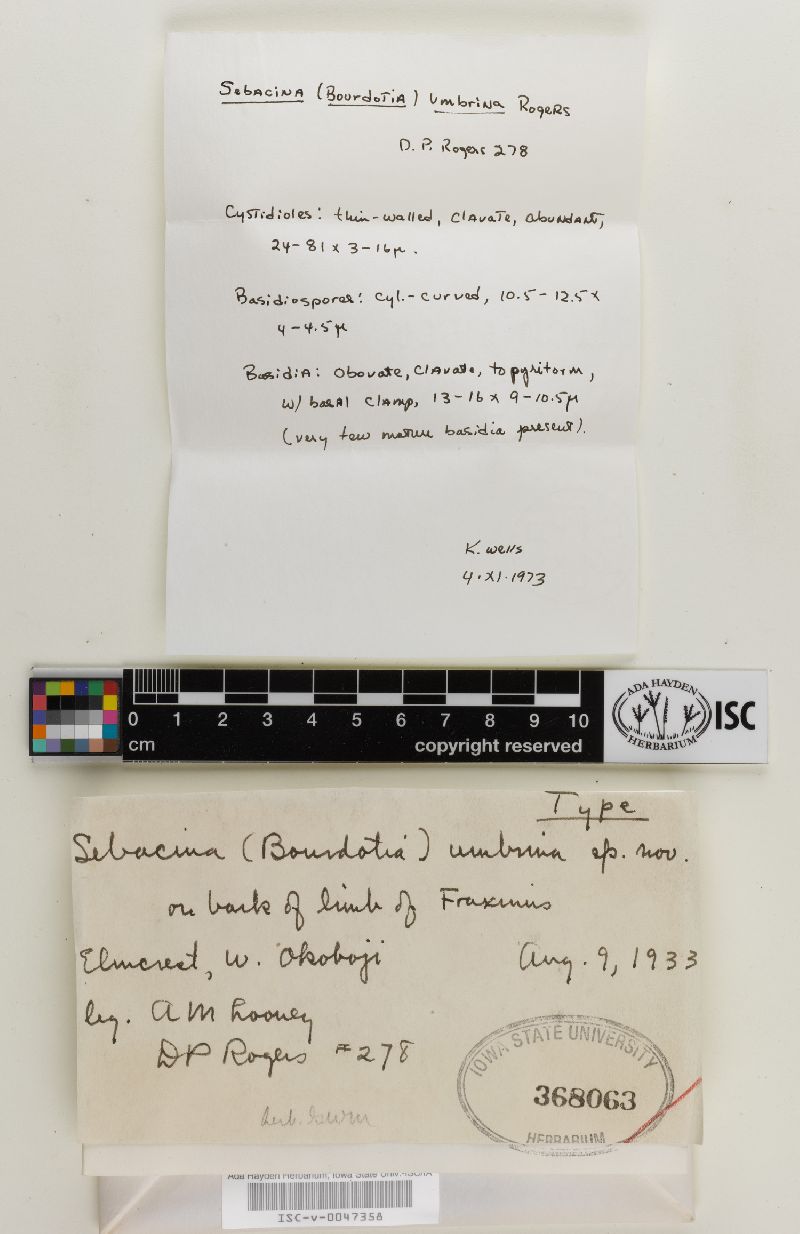 Sebacina (Bourdotia) umbrina Rogers
D. P. Rogers 278
Cystidioles: thin-walled, clavate, abundant,
24-81 x 3-16μ.
Basidiospores: cyl.-curved, 10.5-12.5 x
4-4.5μ
Basidia: obovate, clavate, to pyriform,
w/ basal clamp, 13-16 x 9-10.5μ
(very few mature basidia present).
K. Wells
4.XI.1973
0 1 2 3 4 5 6 7 8 9 10
cm copyright reserved
ADA HAYDEN
HERBARIUM
ISC
Type
Sebacina (Bourdotia) umbrina sp. nov.
on bark of limb of Fraxinus
Elmcrest, W. Okoboji Aug. 9, 1933
leg. A M Looney
D P Rogers #278
IOWA STATE UNIVERSITY
368063
HERBARIUM
Herb.
Ada Hayden Herbarium, Iowa State Univ.
ISC-v-0047358